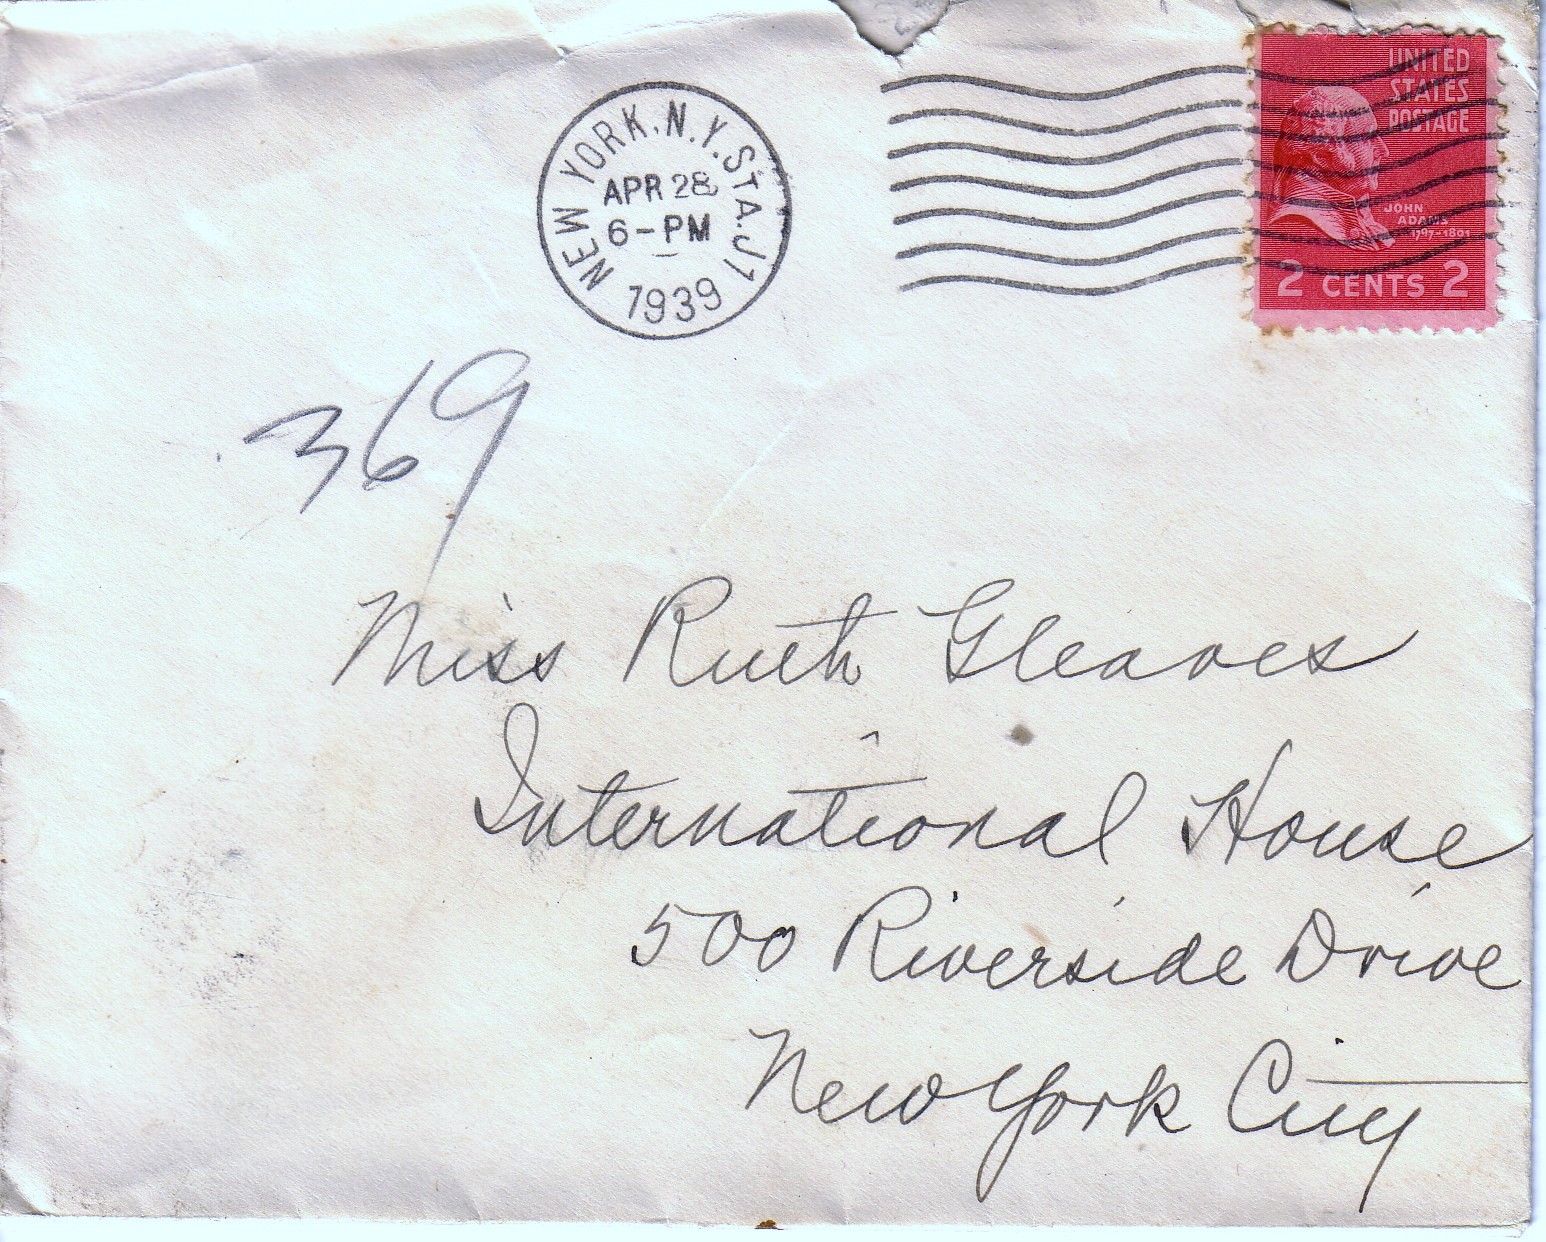 NEW YORK, N.Y. STA. J1
APR 28
6-PM
1939
UNITED
STATES
POSTAGE
JOHN
ADAMS
1797-1801
2 CENTS 2
369
Miss Ruth Gleaves
International House
500 Riverside Drive
New York City